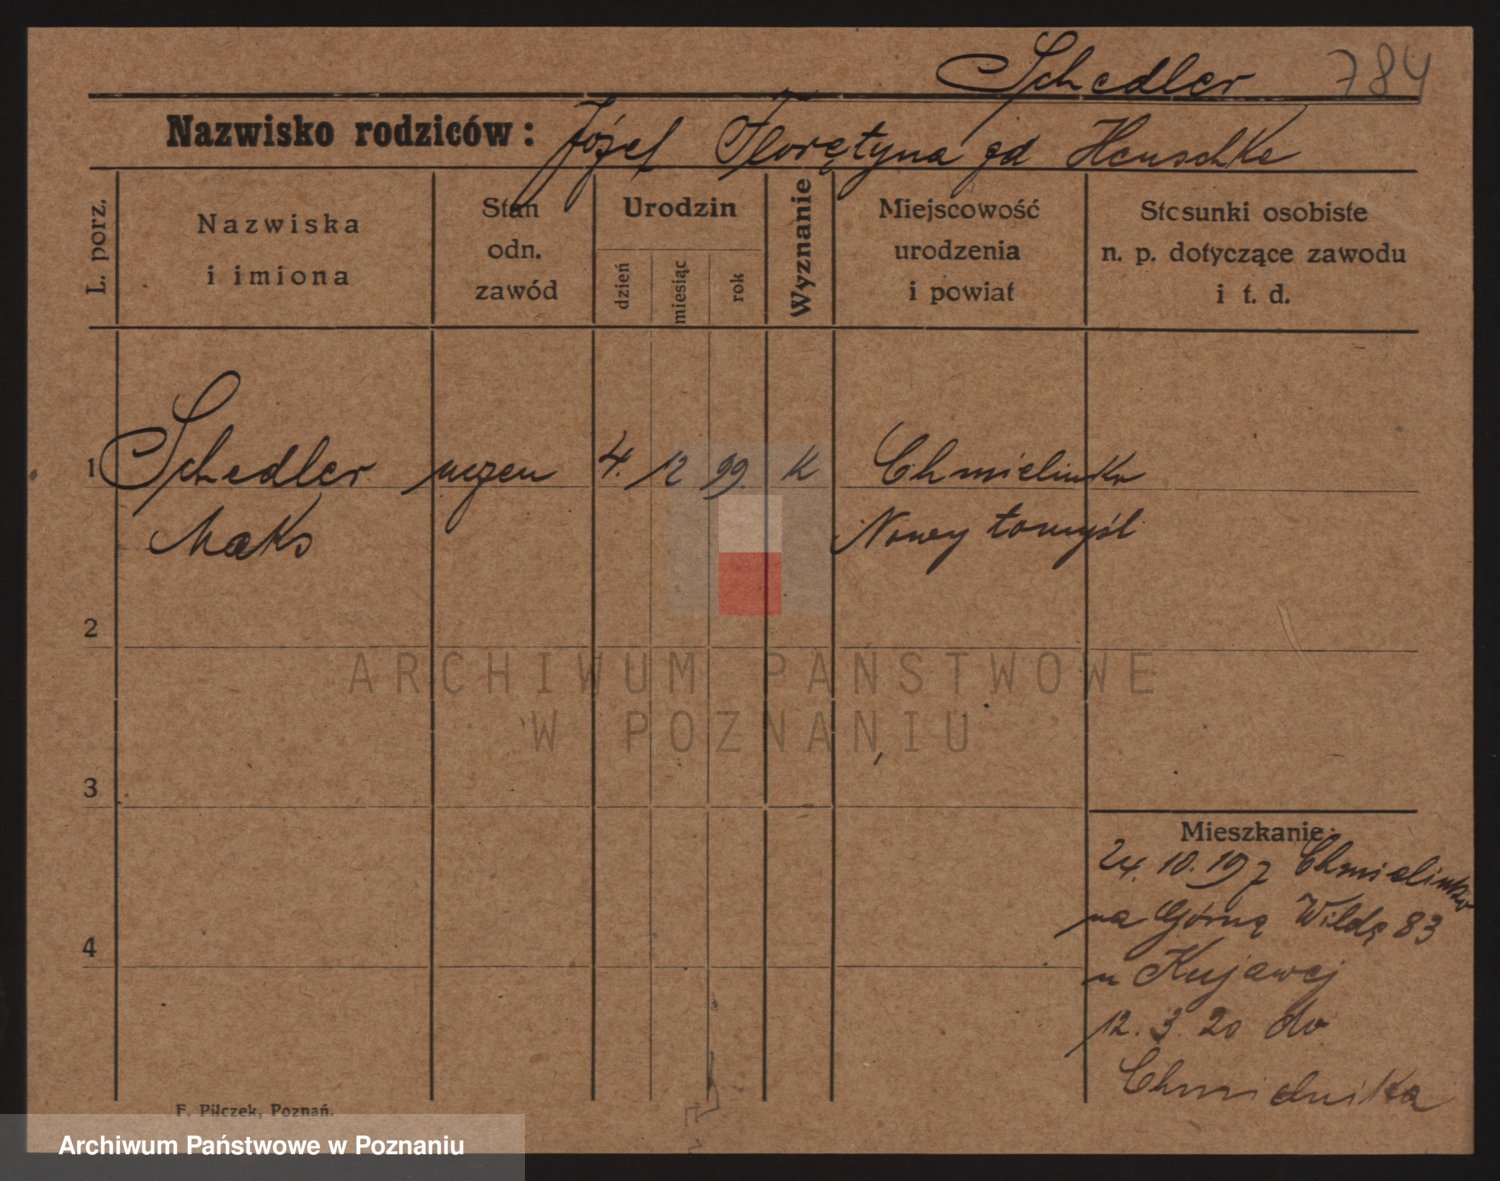 Schedler 784
Nazwisko rodziców: Józef Florętyna gd Henschke
L. porz.
Nazwiska
i imiona
Stan
odn.
zawód
Urodzin
dzień
miesiąc
rok
Wyznanie
Miejscowość
urodzenia
i powiat
Stosunki osobiste
n. p. dotyczące zawodu
i t. d.
1 Schedler uczen 4. 12 99. K Chmielinko
Maks Nowy tomyśl
2
3
4
ARCHIWUM PAŃSTWOWE
W POZNANIU
Mieszkanie:
24. 10. 19 z Chmielinko
na Górną Wildę 83
u Kujawej
12. 3. 20 do
Chmielnika
F. Pilczek, Poznań.
Archiwum Państwowe w Poznaniu